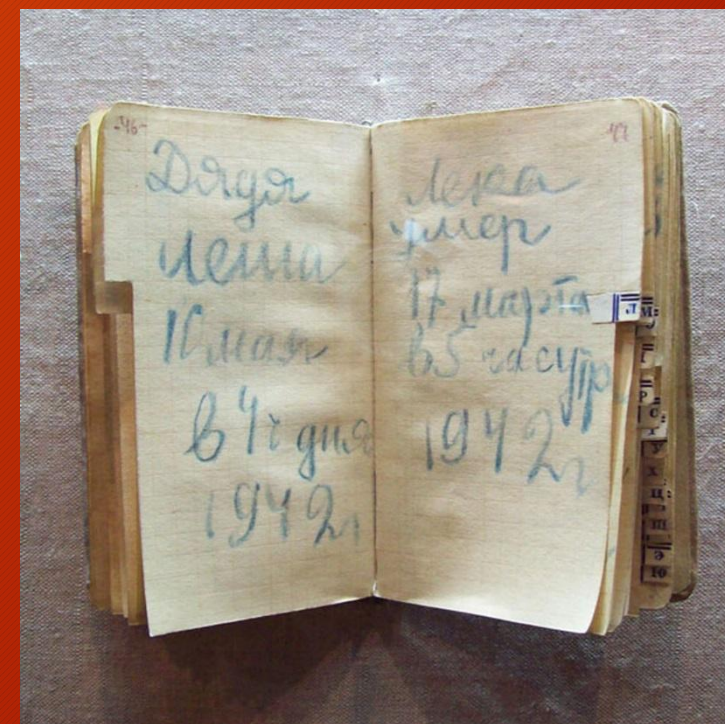 -46-
Дядя
Леша
10 мая
в 4 ч дня
1942 г
47
Лека
умер
17 марта
в 5 час утр
1942 г
Л
М
Р
С
Т
У
Х
Ц
Ш